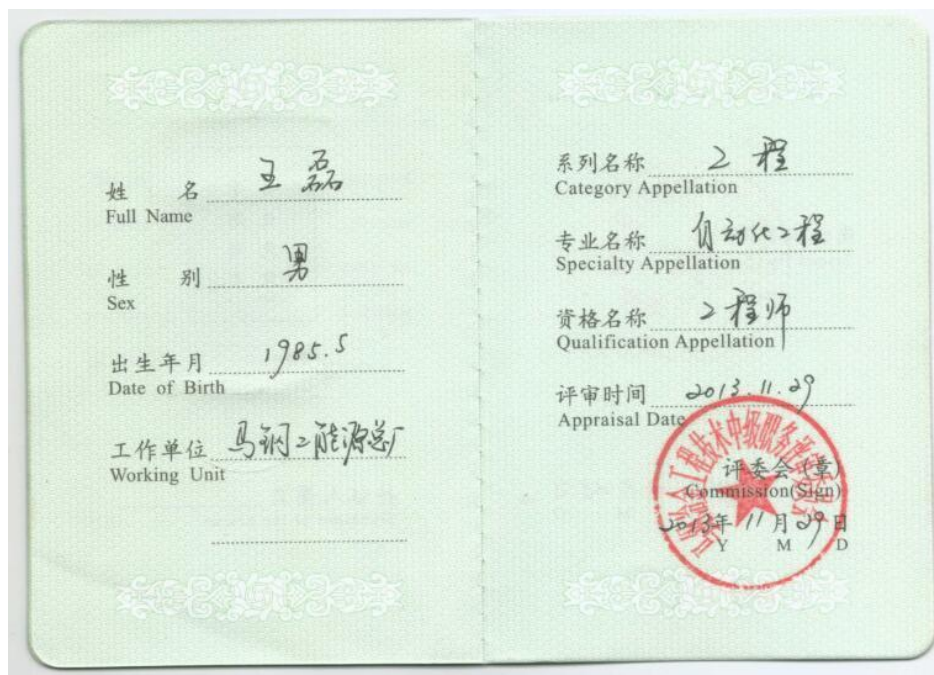 姓 名 王磊
Full Name
性 别 男
Sex
出生年月 1985.5
Date of Birth
工作单位 马钢二能源总厂
Working Unit
系列名称 工程
Category Appellation
专业名称 自动化工程
Specialty Appellation
资格名称 工程师
Qualification Appellation
评审时间 2013.11.29
Appraisal Date
评委会(章)
Commission(Sign)
2013年 11月29日
Y M D